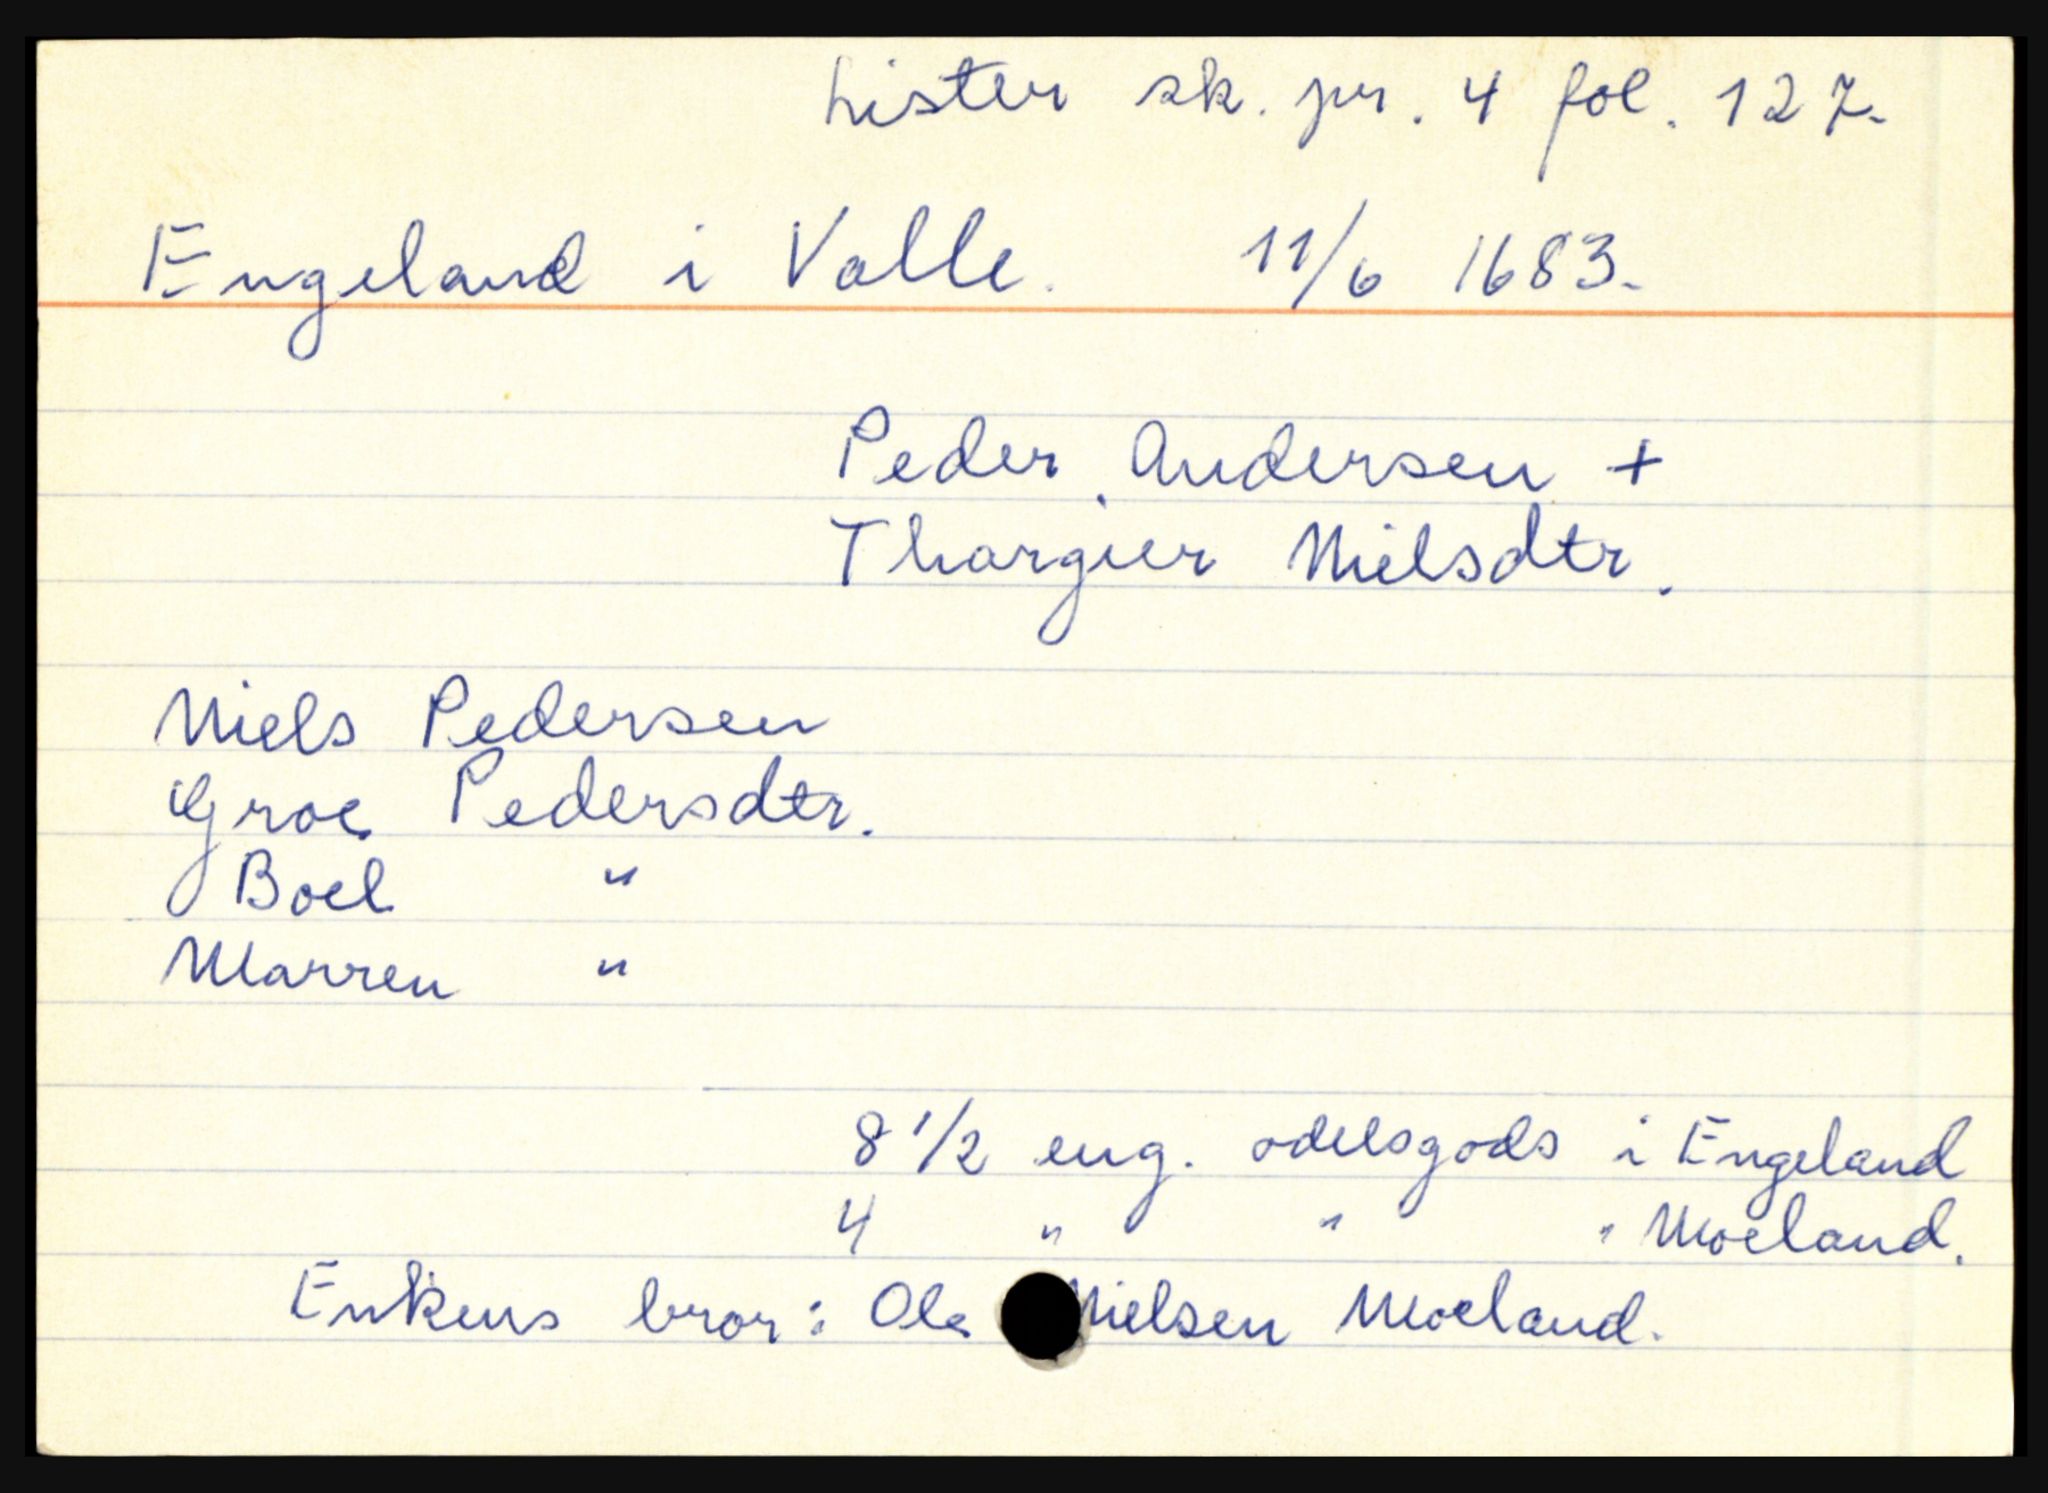 Lister sk. pr. 4 fol. 127.
Engeland i Valle. 11/6 1683.
Peder Andersen +
Thargier Nielsdtr.
Niels Pedersen
Groe Pedersdtr.
Boel "
Marren "
8 1/2 eng. odelsgods i Engeland
4 " " " Moeland.
Enkens bror: Ole Nielsen Moeland.